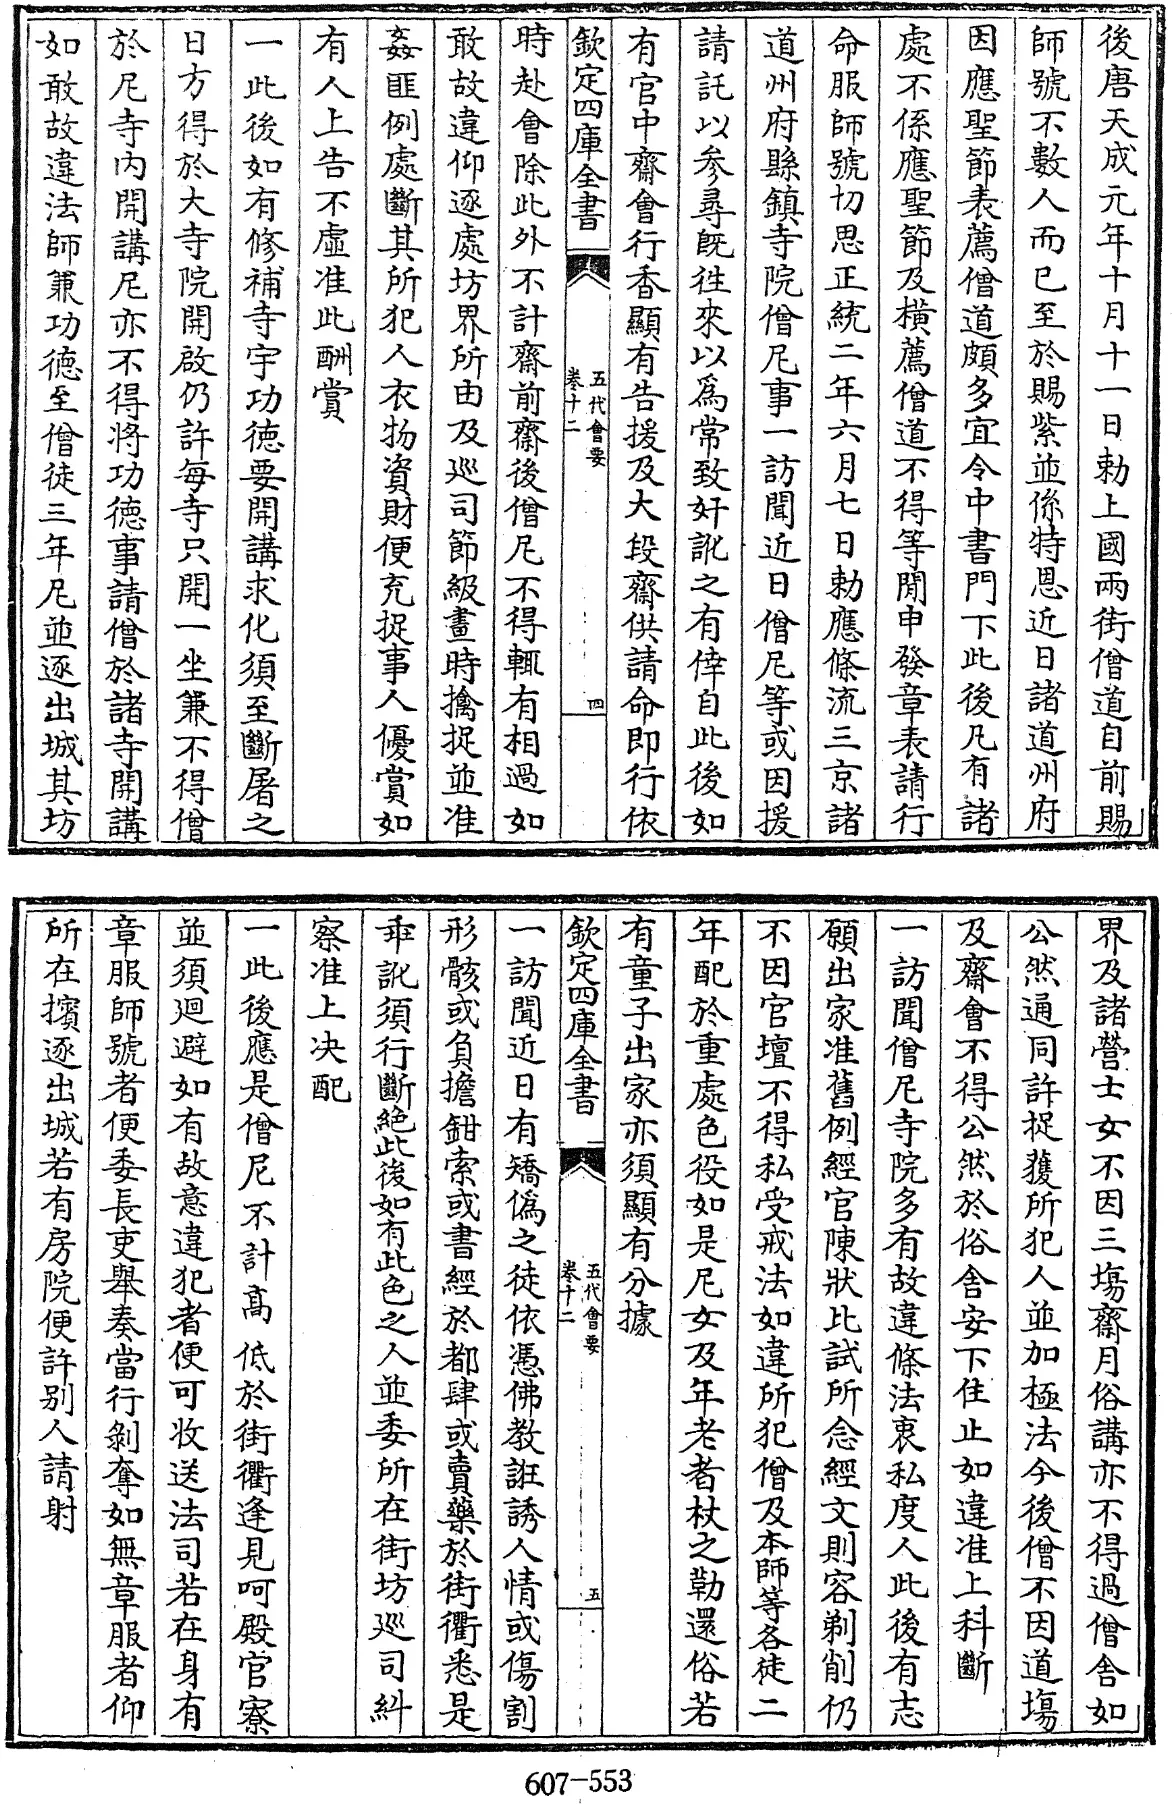 後唐天成元年十月十一日勅上國兩街僧道自前賜
師號不數人而已至於賜紫並係特恩近日諸道州府
因應聖節表薦僧道頗多宜令中書門下此後凡有諸
處不係應聖節及橫薦僧道不得等閒申發章表請行
命服師號切思正統二年六月七日勅應條流三京諸
道州府縣鎮寺院僧尼事一訪聞近日僧尼等或因援
請託以參尋既徃來以為常致奸訛之有倖自此後如
有官中齋會行香顯有告援及大段齋供請命即行依
欽定四庫全書
五代會要
卷十二
四
時赴會除此外不計齋前齋後僧尼不得輒有相過如
敢故違仰逐處坊界所由及巡司節級畫時擒捉並准
姦匪例處斷其所犯人衣物資財便充捉事人優賞如
有人上告不虛准此酬賞
一此後如有修補寺宇功徳要開講求化須至斷屠之
日方得於大寺院開啟仍許每寺只開一坐兼不得僧
於尼寺內開講尼亦不得將功徳事請僧於諸寺開講
如敢故違法師兼功徳至僧徒三年尼並逐出城其坊
界及諸營士女不因三塲齋月俗講亦不得過僧舍如
公然通同許捉獲所犯人並加極法今後僧不因道塲
及齋會不得公然於俗舍安下住止如違准上科斷
一訪聞僧尼寺院多有故違條法衷私度人此後有志
願出家准舊例經官陳狀比試所念經文則容剃削仍
不因官壇不得私受戒法如違所犯僧及本師等各徒二
年配於重處色役如是尼女及年老者杖之勒還俗若
有童子出家亦須顯有分據
欽定四庫全書
五代會要
卷十二
五
一訪聞近日有矯偽之徒依憑佛教誑誘人情或傷割
形骸或負擔鉗索或書經於都肆或賣藥於街衢悉是
乖訛須行斷絕此後如有此色之人並委所在街坊巡司糾
察准上决配
一此後應是僧尼不計髙低於街衢逢見呵殿官寮
並須迴避如有故意違犯者便可收送法司若在身有
章服師號者便委長吏舉奏當行剝奪如無章服者仰
所在擯逐出城若有房院便許別人請射
607-553